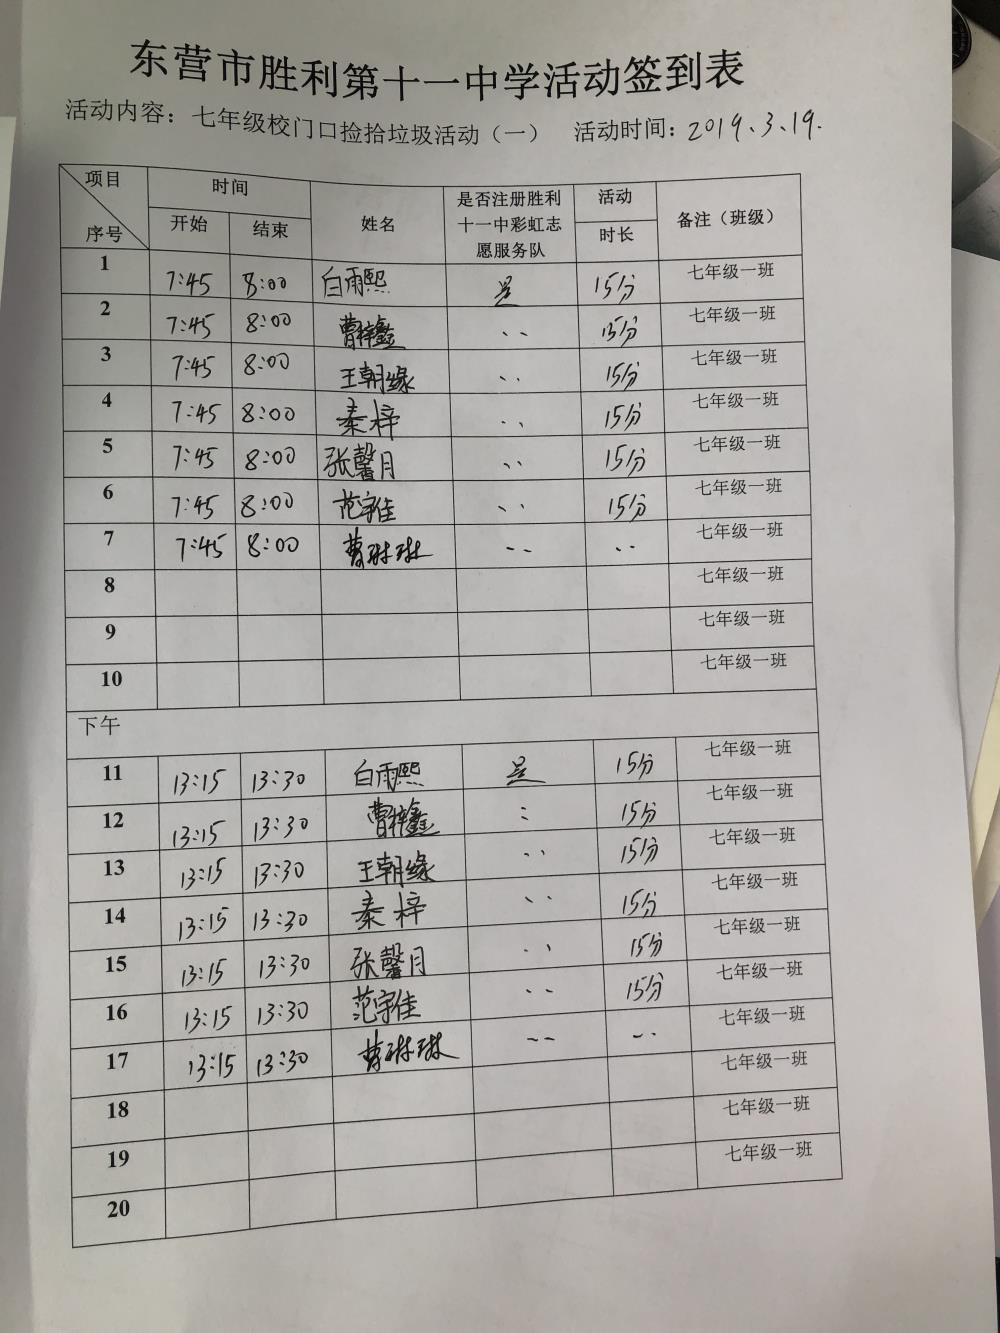 东营市胜利第十一中学活动签到表
活动内容：七年级校门口捡拾垃圾活动（一） 活动时间：2019.3.19.
项目 序号 时间 开始 结束 姓名 是否注册胜利十一中彩虹志愿服务队 活动时长 备注（班级）
1 7:45 8:00 白雨熙 是 15分 七年级一班
2 7:45 8:00 曹梓鑫 、、 15分 七年级一班
3 7:45 8:00 王朝缘 、、 15分 七年级一班
4 7:45 8:00 秦梓 、、 15分 七年级一班
5 7:45 8:00 张馨月 、、 15分 七年级一班
6 7:45 8:00 范宇佳 、、 15分 七年级一班
7 7:45 8:00 曹琳琳 、、 、、 七年级一班
8 七年级一班
9 七年级一班
10 七年级一班
下午
11 13:15 13:30 白雨熙 是 15分 七年级一班
12 13:15 13:30 曹梓鑫 、、 15分 七年级一班
13 13:15 13:30 王朝缘 、、 15分 七年级一班
14 13:15 13:30 秦梓 、、 15分 七年级一班
15 13:15 13:30 张馨月 、、 15分 七年级一班
16 13:15 13:30 范宇佳 、、 15分 七年级一班
17 13:15 13:30 曹琳琳 、、 、、 七年级一班
18 七年级一班
19 七年级一班
20 七年级一班